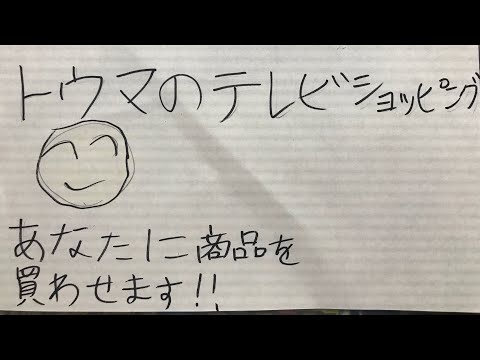 トウマのテレビショッピング
あなたに商品を
買わせます!!